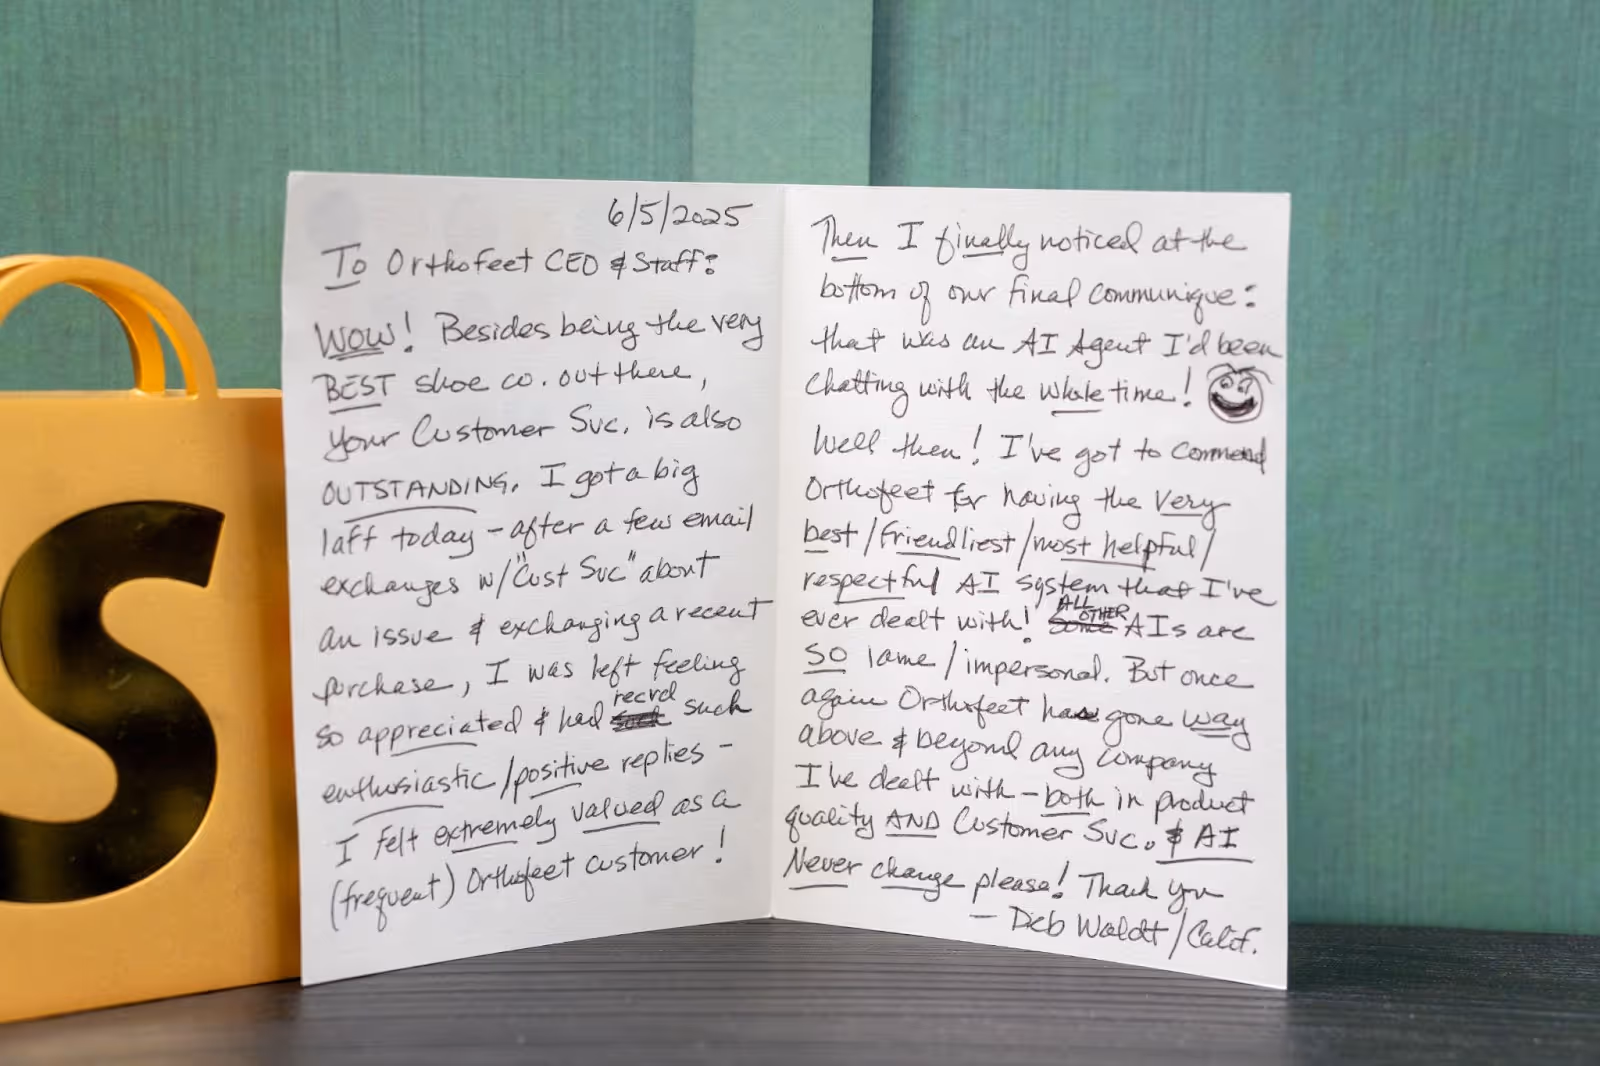 S
6/5/2025
To Orthofeet CEO & Staff:
WOW! Besides being the very
BEST shoe co. out there,
your Customer Svc. is also
OUTSTANDING. I got a big
laff today - after a few email
exchanges w/"Cust Svc" about
an issue & exchanging a recent
purchase, I was left feeling
so appreciated & had recvd such
enthusiastic/positive replies -
I felt extremely valued as a
(frequent) Orthofeet customer!
Then I finally noticed at the
bottom of our final communique:
that was an AI Agent I'd been
Chatting with the whole time!
Well then! I've got to commend
Orthofeet for having the very
best/friendliest/most helpful/
respectful AI system that I've
ever dealt with! ALL OTHER AIs are
SO lame/impersonal. But once
again Orthofeet has gone way
above & beyond any company
I've dealt with - both in product
quality AND Customer Svc. & AI
Never change please! Thank you
- Waldt/Calif.